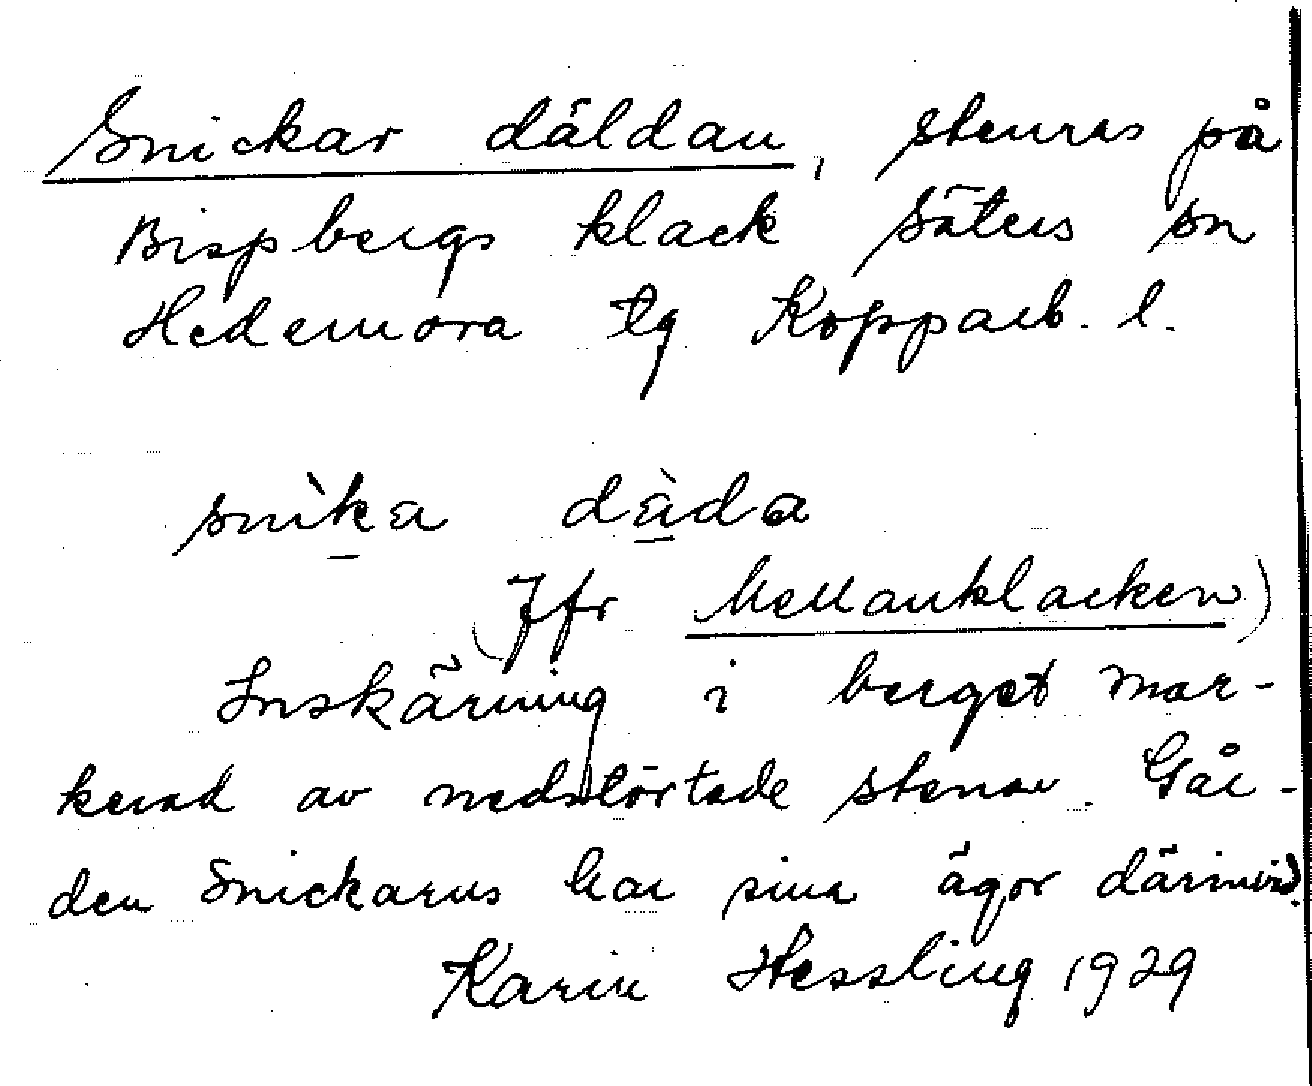 Snickar däldan, stenras på
Bispbergs klack Säters sn
Hedemora tg Kopparb. l.
snìka dàda
(Jfr Mellanklacken)
Inskärning i berget mar-
kerad av nedstörtade stenar. Går-
den Snickarns har sina ägor därinvid.
Karin Hessling 1929